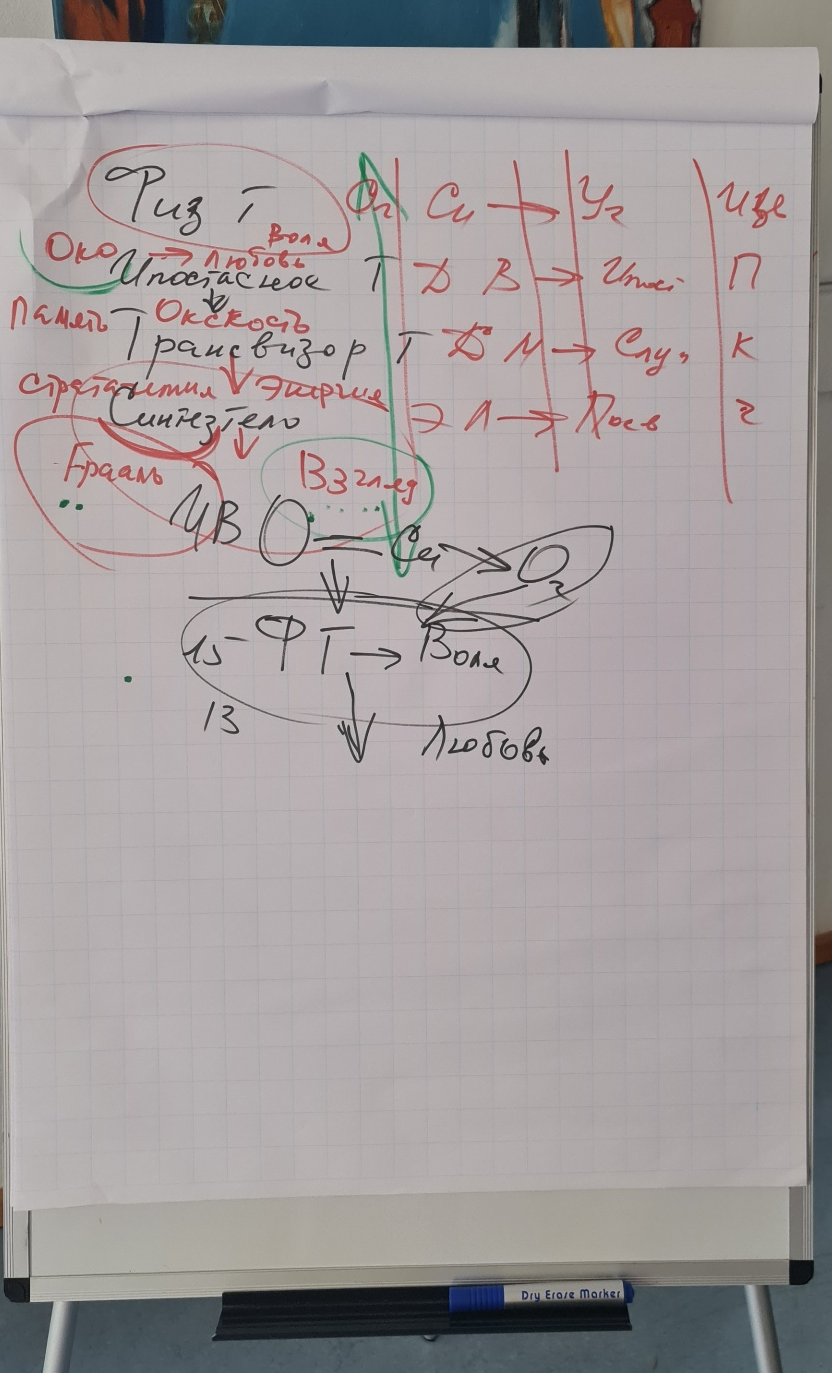 Физ Т Ог Си → Уч Изв
Воля
Око → Любовь
Ипостасное Т Д В → Ипос П
Память Окскость
Трансвизор Т Д М → Служ К
Энергия
Синтезтело Э Л → Посв Ч
Грааль Взгляд
ИВ О = Си → О
15 - ФТ → Воля
13 Любовь
Dry Erase Marker